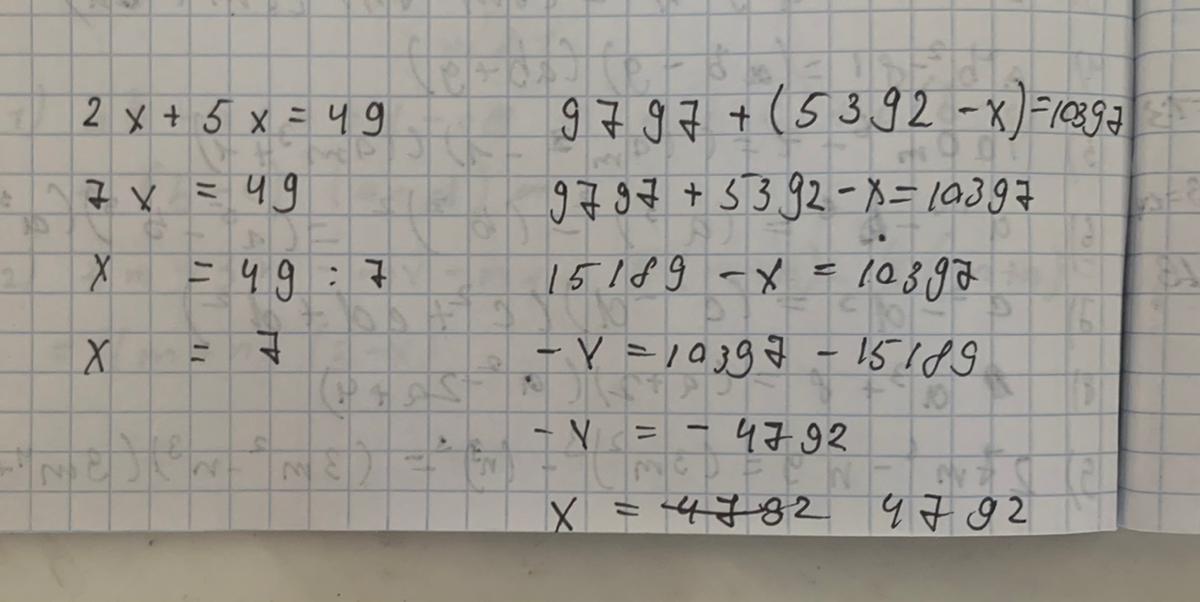 2x + 5x = 49
7x = 49
x = 49 : 7
x = 7
9797 + (5392 - x) = 10397
9797 + 5392 - x = 10397
15189 - x = 10397
- x = 10397 - 15189
- x = - 4792
x = 4792 4792